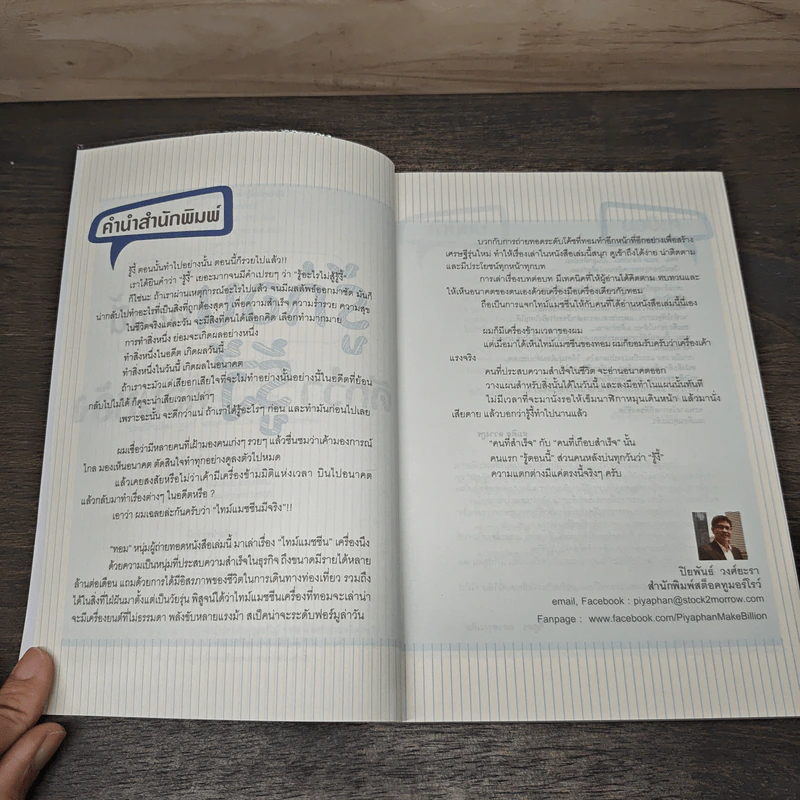 คำนำสำนักพิมพ์
รู้งี้ ตอนนั้นทำไปอย่างนั้น ตอนนี้ก็รวยไปแล้ว!!
เราได้ยินคำว่า "รู้งี้" เยอะมากจนมีคำเปรยๆ ว่า "รู้อะไรไม่สู้รู้งี้"
ก็ใช่นะ ถ้าเราผ่านเหตุการณ์อะไรไปแล้ว จนมีผลลัพธ์ออกมาชัด มันก็
น่ากลับไปทำอะไรที่เป็นสิ่งที่ถูกต้องสุดๆ เพื่อความสำเร็จ ความร่ำรวย ความสุข
ในชีวิตจริงแต่ละวัน จะมีสิ่งที่คนได้เลือกคิด เลือกทำมากมาย
การทำสิ่งหนึ่ง ย่อมจะเกิดผลอย่างหนึ่ง
ทำสิ่งหนึ่งในอดีต เกิดผลวันนี้
ทำสิ่งหนึ่งในวันนี้ เกิดผลในอนาคต
ถ้าเราจะมัวแต่เสียอกเสียใจที่จะไม่ทำอย่างนั้นอย่างนี้ในอดีตที่ย้อน
กลับไปไม่ได้ ก็ดูจะน่าเสียเวลาเปล่าๆ
เพราะฉะนั้น จะดีกว่าแน่ ถ้าเราได้รู้อะไรๆ ก่อน และทำมันก่อนไปเลย
ผมเชื่อว่ามีหลายคนที่เฝ้ามองคนเก่งๆ รวยๆ แล้วชื่นชมว่าเค้ามองการณ์
ไกล มองเห็นอนาคต ตัดสินใจทำทุกอย่างดูลงตัวไปหมด
แล้วเคยสงสัยหรือไม่ว่าเค้ามีเครื่องข้ามมิติแห่งเวลา บินไปอนาคต
แล้วกลับมาทำเรื่องต่างๆ ในอดีตหรือ ?
เอาว่า ผมเฉลยล่ะกันครับว่า "ไทม์แมชชีนมีจริง"!!
"ทอม" หนุ่มผู้ถ่ายทอดหนังสือเล่มนี้ มาเล่าเรื่อง "ไทม์แมชชีน" เครื่องนึง
ด้วยความเป็นหนุ่มที่ประสบความสำเร็จในธุรกิจ ถึงขนาดมีรายได้หลาย
ล้านต่อเดือน แถมด้วยการได้มีอิสรภาพของชีวิตในการเดินทางท่องเที่ยว รวมถึง
ได้ในสิ่งที่ใฝ่ฝันมาตั้งแต่เป็นวัยรุ่น พิสูจน์ได้ว่าไทม์แมชชีนเครื่องที่ทอมจะเล่าน่า
จะมีเครื่องยนต์ที่ไม่ธรรมดา พลังขับหลายแรงม้า สเป็คน่าจะระดับฟอร์มูล่าวัน
บวกกับการถ่ายทอดระดับโค้ชที่ทอมทำอีกหน้าที่อีกอย่างเพื่อสร้าง
เศรษฐีรุ่นใหม่ ทำให้เรื่องเล่าในหนังสือเล่มนี้สนุก ดูเข้าถึงได้ง่าย น่าติดตาม
และมีประโยชน์ทุกหน้าทุกบท
การเล่าเรื่องบทต่อบท มีเทคนิคที่ให้ผู้อ่านได้คิดตาม ทบทวนและ
ให้เห็นอนาคตของตนเองด้วยเครื่องมือเครื่องเดียวกับทอม
ถือเป็นการแจกไทม์แมชชีนให้กับคนที่ได้อ่านหนังสือเล่มนี้นี่เอง
ผมก็มีเครื่องข้ามเวลาของผม
แต่เมื่อมาได้เห็นไทม์แมชชีนของทอม ผมก็ยอมรับครับว่าเครื่องเค้า
แรงจริง
คนที่ประสบความสำเร็จในชีวิต จะอ่านอนาคตออก
วางแผนสำหรับสิ่งนั้นได้ในวันนี้ และลงมือทำในแผนนั้นทันที
ไม่มีเวลาที่จะมานั่งรอให้เข็มนาฬิกาหมุนเดินหน้า แล้วมานั่ง
เสียดาย แล้วบอกว่ารู้งี้ทำไปนานแล้ว
"คนที่สำเร็จ" กับ "คนที่เกือบสำเร็จ" นั้น
คนแรก "รู้ตอนนี้" ส่วนคนหลังบ่นทุกวันว่า "รู้งี้"
ความแตกต่างมีแค่ตรงนี้จริงๆ ครับ
ปิยพันธ์ วงศ์ยะรา
สำนักพิมพ์สต็อคทูมอร์โรว์
email, Facebook : piyaphan@stock2morrow.com
Fanpage : www.facebook.com/PiyaphanMakeBillion